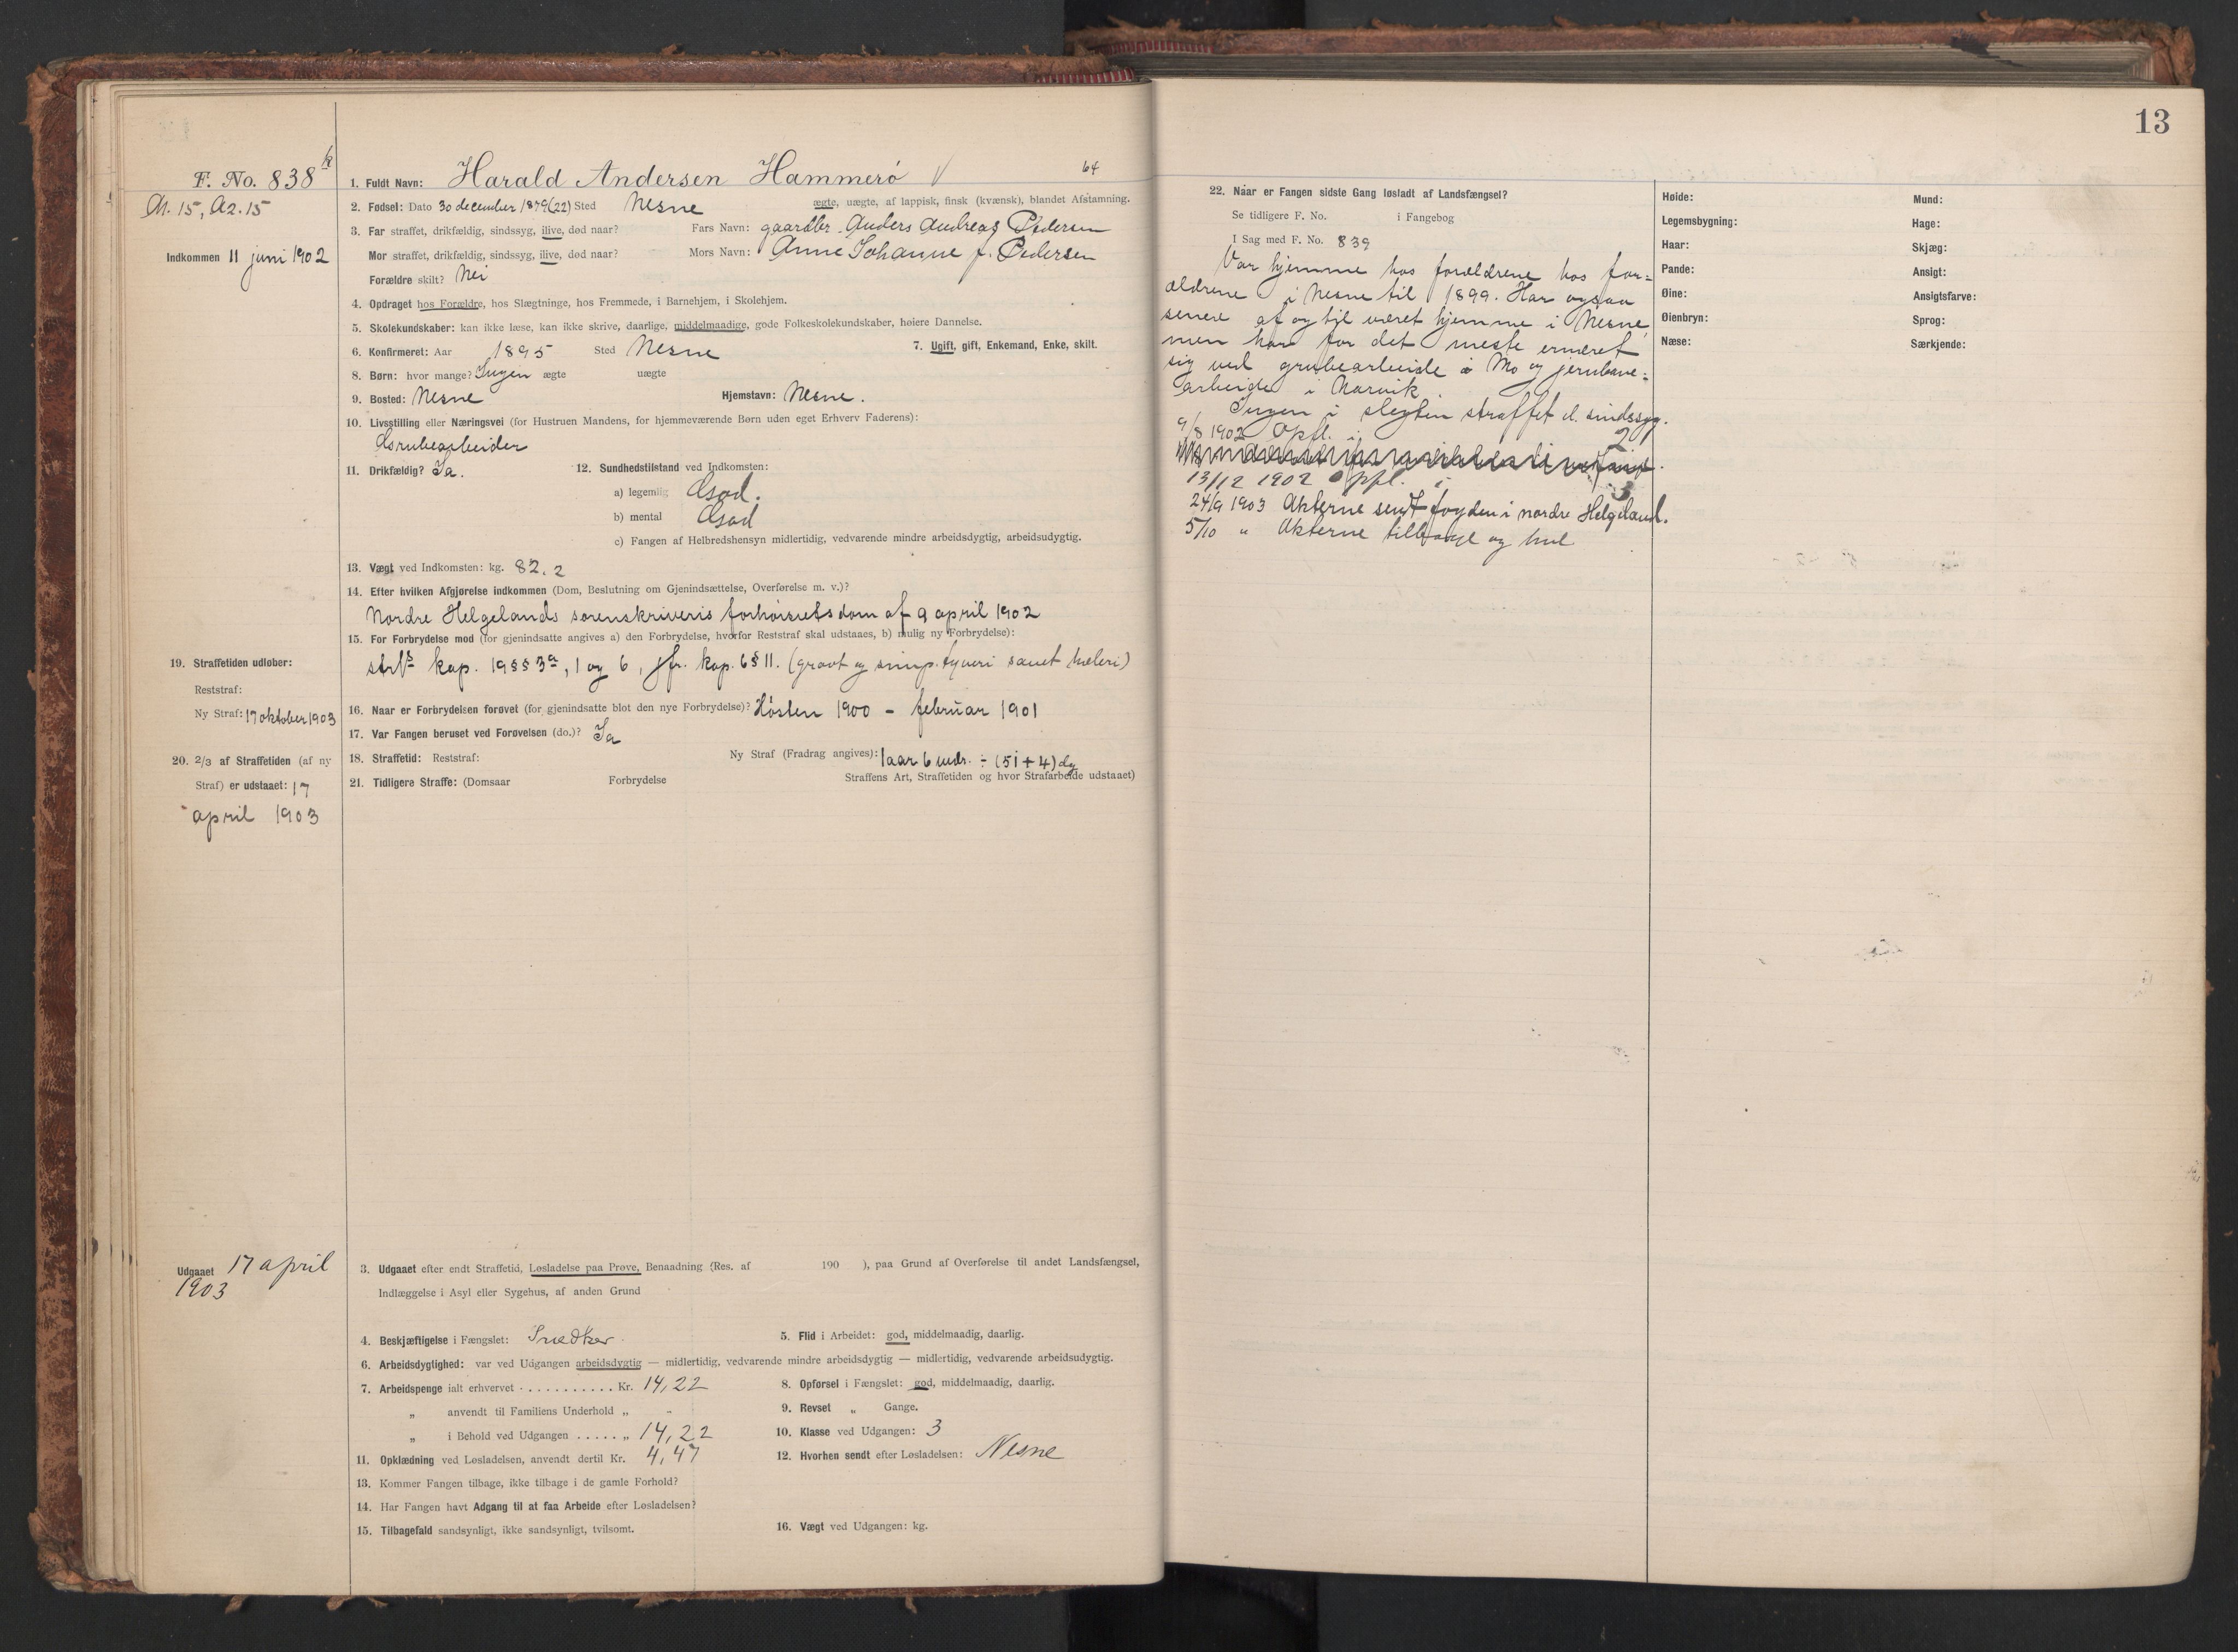 13
F. No. 838
A1. 15, A2. 15
Indkommen 11 juni 1902
1. Fuldt Navn: Harald Andersen Hammerö 64
2. Fødsel: Dato 30 december 1879 (22) Sted Nesne ægte, uægte, af lappisk, finsk (kvænsk), blandet Afstamning.
3. Far straffet, drikfældig, sindssyg, ilive, død naar? Fars Navn: gaardbr. Anders Andreas Pedersen
Mor straffet, drikfældig, sindssyg, ilive, død naar? Mors Navn: Anne Johanne f. Pedersen
Forældre skilt? Nei
4. Opdraget hos Forældre, hos Slægtninge, hos Fremmede, i Barnehjem, i Skolehjem.
5. Skolekundskaber: kan ikke læse, kan ikke skrive, daarlige, middelmaadige, gode Folkeskolekundskaber, høiere Dannelse.
6. Konfirmeret: Aar 1895 Sted Nesne 7. Ugift, gift, Enkemand, Enke, skilt.
8. Børn: hvor mange? Ingen ægte uægte
9. Bosted: Nesne Hjemstavn: Nesne.
10. Livsstilling eller Næringsvei (for Hustruen Mandens, for hjemmeværende Børn uden eget Erhverv Faderens):
Grubearbeider
11. Drikfældig? Ja. 12. Sundhedstilstand ved Indkomsten:
a) legemlig God.
b) mental God
c) Fangen af Helbredshensyn midlertidig, vedvarende mindre arbeidsdygtig, arbeidsudygtig.
13. Vægt ved Indkomsten: kg. 82.2
14. Efter hvilken Afgjørelse indkommen (Dom, Beslutning om Gjenindsættelse, Overførelse m. v.)?
Nordre Helgelands sorenskriveris forhörsretsdom af 9 april 1902
15. For Forbrydelse mod (for gjenindsatte angives a) den Forbrydelse, hvorfor Reststraf skal udstaaes, b) mulig ny Forbrydelse):
kap. 19 §§ 3a, 1 og 6, jfr. kap. 6 § 11. (grovt og simp. tyveri samt hæleri)
19. Straffetiden udløber:
Reststraf:
Ny Straf: 17 oktober 1903
16. Naar er Forbrydelsen forøvet (for gjenindsatte blot den nye Forbrydelse)? Hösten 1900 - februar 1901
17. Var Fangen beruset ved Forøvelsen (do.)? Ja
18. Straffetid: Reststraf: Ny Straf (Fradrag angives): 1 aar 6 mdr. ÷ (51 + 4) dg
20. 2/3 af Straffetiden (af ny
Straf) er udstaaet: 17
april 1903
21. Tidligere Straffe: (Domsaar Forbrydelse Straffens Art, Straffetiden og hvor Strafarbeide udstaaet)
Udgaaet 17 april
1903
3. Udgaaet efter endt Straffetid, Løsladelse paa Prøve, Benaadning (Res. af 190 ), paa Grund af Overførelse til andet Landsfængsel,
Indlæggelse i Asyl eller Sygehus, af anden Grund
4. Beskjæftigelse i Fængslet: Snedker 5. Flid i Arbeidet: god, middelmaadig, daarlig.
6. Arbeidsdygtighed: var ved Udgangen arbeidsdygtig — midlertidig, vedvarende mindre arbeidsdygtig — midlertidig, vedvarende arbeidsudygtig.
7. Arbeidspenge ialt erhvervet . . . . . . . . . . . Kr. 14,22 8. Opførsel i Fængslet: god, middelmaadig, daarlig.
„ anvendt til Familiens Underhold „ „ 9. Revset „ Gange.
„ i Behold ved Udgangen . . . . . „ 14,22 10. Klasse ved Udgangen: 3
11. Opklædning ved Løsladelsen, anvendt dertil Kr. 4,47 12. Hvorhen sendt efter Løsladelsen: Nesne
13. Kommer Fangen tilbage, ikke tilbage i de gamle Forhold?
14. Har Fangen havt Adgang til at faa Arbeide efter Løsladelsen?
15. Tilbagefald sandsynligt, ikke sandsynligt, tvilsomt. 16. Vægt ved Udgangen: kg.
22. Naar er Fangen sidste Gang løsladt af Landsfængsel?
Se tidligere F. No. i Fangebog
I Sag med F. No. 839
Var hjemme hos forældrene hos for=
ældrene i Nesne til 1899. Har ogsaa
senere af og til været hjemme i Nesne,
men har for det meste ernæret
sig ved grubearbeide i Mo og jernbane=
arbeide i Narvik.
Ingen i slegten straffet el. sindssyg.
9/8 1902 Opfl. i 2
13/12 1902 Opfl. i 3
24/9 1903 Akterne sendt fogden i nordre Helgeland.
5/10 „ Akterne tilbage og
Høide:
Legemsbygning:
Haar:
Pande:
Øine:
Øienbryn:
Næse:
Mund:
Hage:
Skjæg:
Ansigt:
Ansigtsfarve:
Sprog:
Særkjende: